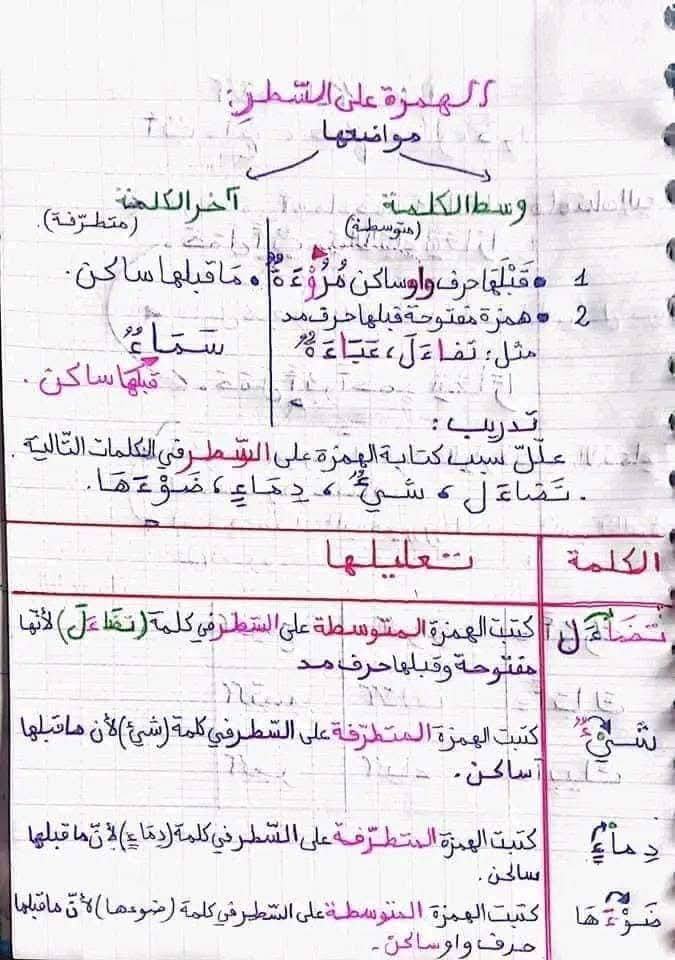 الهمزة على السّطرِ:
مواضعها
وسط الكلمة
(متوسطة)
آخر الكلمة
(متطرّفة).
1 • قَبْلَها حرف واو ساكن مُرُوْءَةٌ
2 • همزة مفتوحة قبلها حرف مد
مثل: تفاءَلَ، عَبَاءَةٌ
• مَا قبلها ساكن.
سَمَاءٌ
قبلها ساكن.
تدريب:
علّلّ سبب كتابة الهمزة على السّطر في الكلمات التّالية.
تَضاءَل، شَيْءٌ، دِمَاءٍ، ضَوْءَهَا.
الكلمة
تعليلها
تَضَاءَلَ
كتبت الهمزة المتوسطة على السّطر في كلمة (تضَاءَلَ) لأنّها
مفتوحة وقبلها حرف مد
شَيْءٌ
كتبت الهمزة المتطرّفة على السّطر في كلمة (شيءٌ) لأن ما قبلها
ساكن.
دِماءٍ
كتبت الهمزة المتطرّفة على السّطر في كلمة (دِمَاءٍ) لأنّ ما قبلها
ساكن.
ضَوْءَهَا
كتبت الهمزة المتوسطة على السّطر في كلمة (ضوءها) لأنّ ما قبلها
حرف واو ساكن.